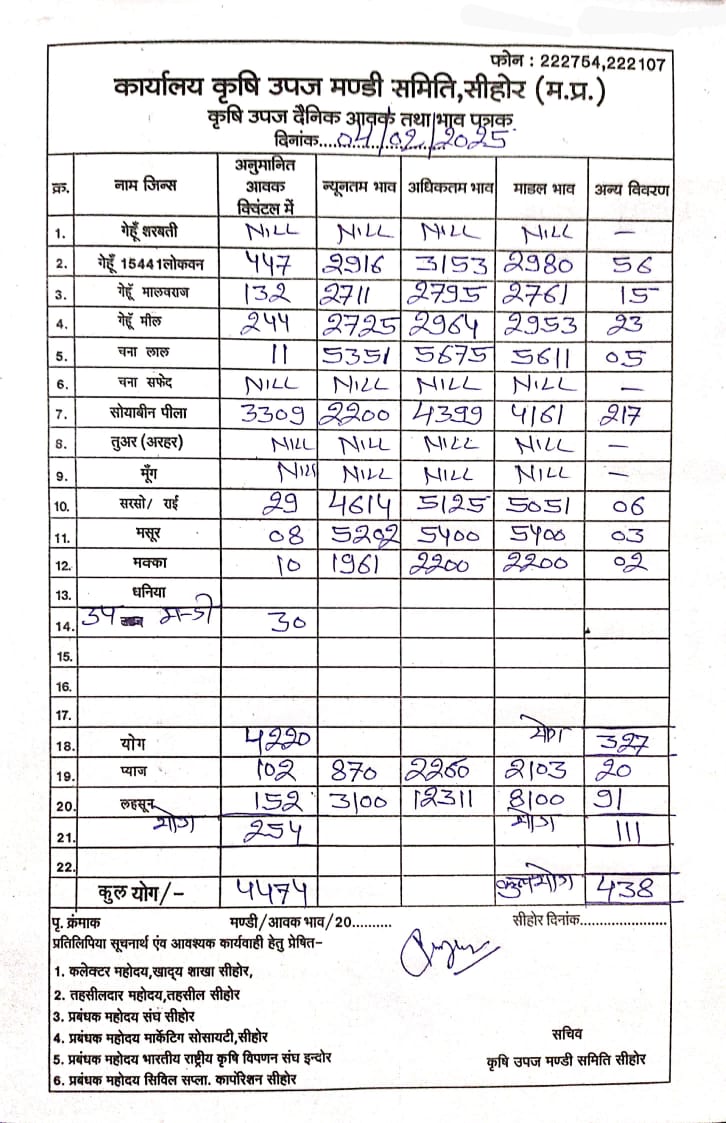 फोन : 222754,222107
कार्यालय कृषि उपज मण्डी समिति,सीहोर (म.प्र.)
कृषि उपज दैनिक आवक तथा भाव पत्रक
दिनांक....04/02/2025
क्र. नाम जिन्स अनुमानित आवक क्विंटल में न्यूनतम भाव अधिकतम भाव माडल भाव अन्य विवरण
1. गेहूँ शरबती NILL NILL NILL NILL —
2. गेहूँ 15441लोकवन 447 2916 3153 2980 56
3. गेहूँ मालवराज 132 2711 2795 2761 15
4. गेहूँ मील 244 2725 2964 2953 23
5. चना लाल 11 5351 5675 5611 05
6. चना सफेद NILL NILL NILL NILL —
7. सोयाबीन पीला 3309 2200 4399 4161 217
8. तुअर (अरहर) NILL NILL NILL NILL —
9. मूँग NILL NILL NILL NILL —
10. सरसो/ राई 29 4614 5125 5051 06
11. मसूर 08 5202 5400 5400 03
12. मक्का 10 1961 2200 2200 02
13. धनिया
14. उप मन्डी 30
15.
16.
17.
18. योग 4220 योग 327
19. प्याज 102 870 2260 2103 20
20. लहसून 152 3100 12311 8100 91
21. योग 254 योग 111
22.
कुल योग/- 4474 कुलयोग 438
पृ. क्रंमाक मण्डी/आवक भाव/20.......... सीहोर दिनांक......................
प्रतिलिपिया सूचनार्थ एंव आवश्यक कार्यवाही हेतु प्रेषित-
1. कलेक्टर महोदय,खाद्य शाखा सीहोर,
2. तहसीलदार महोदय,तहसील सीहोर
3. प्रबंधक महोदय संघ सीहोर
4. प्रबंधक महोदय मार्केटिग सोसायटी,सीहोर
5. प्रबंधक महोदय भारतीय राष्ट्रीय कृषि विपणन संघ इन्दोर
6. प्रबंधक महोदय सिविल सप्ला. कार्पोरेशन सीहोर
सचिव
कृषि उपज मण्डी समिति सीहोर